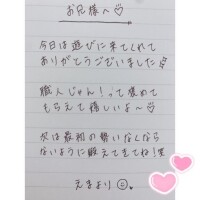 お兄様へ♡
今日は遊びに来てくれて
ありがとうございました
職人じゃん!って褒めて
もらえて嬉しいよ〜♡
次は最初の勢いなくなら
ないように鍛えてきてね!笑
えまより☺